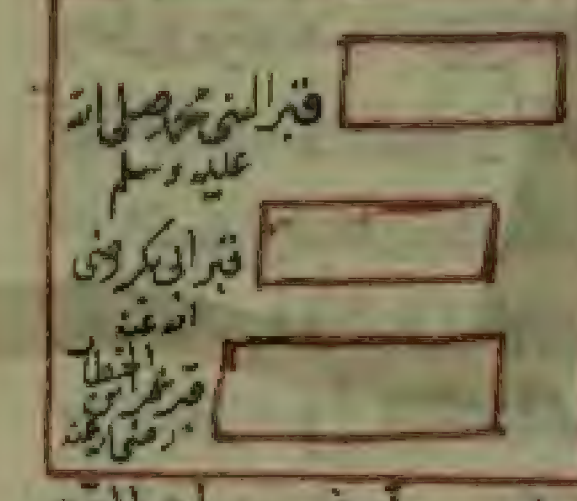 قبر النبي محمد صلى الله
عليه وسلم
قبر ابى بكر رضى
الله عنه
قبر عمر ابن الخطاب
رضى الله عنه